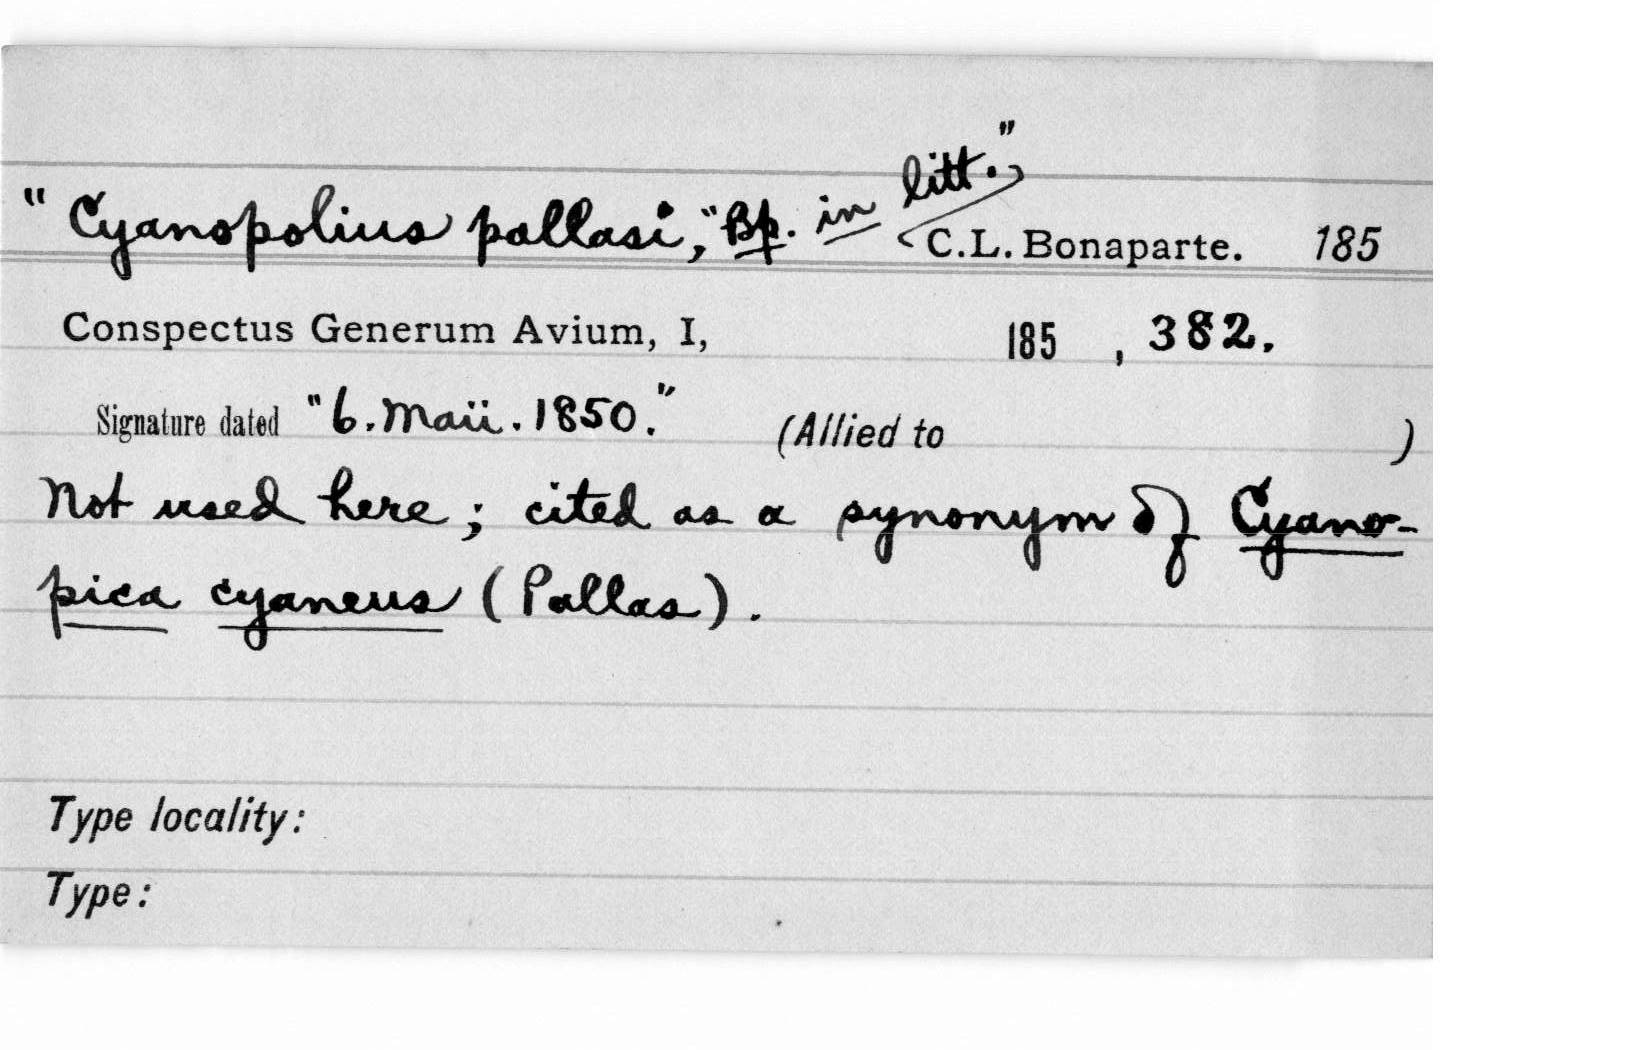 " Cyanopolius pallasi, "Bp. in litt."
C.L. Bonaparte. 185
Conspectus Generum Avium, I, 185 , 382.
Signature dated "6. Maii. 1850." (Allied to )
Not used here; cited as a synonym of Cyano-
pica cyaneus (Pallas).
Type locality:
Type: